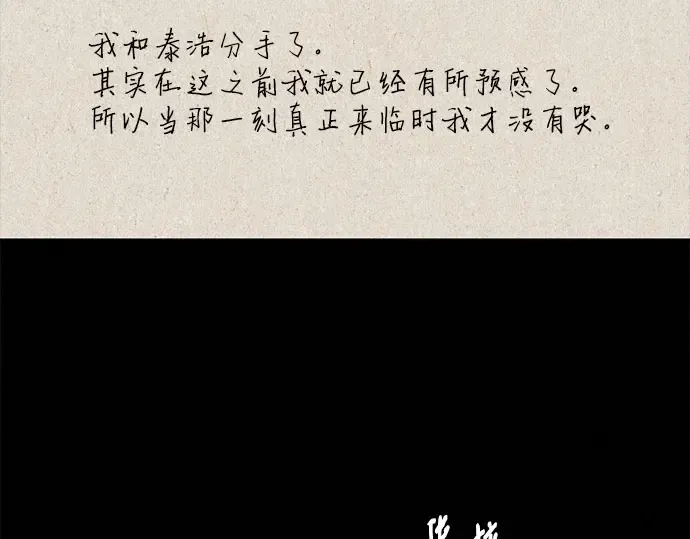 我和泰浩分手了。
其实在这之前我就已经有所预感了。
所以当那一刻真正来临时我才没有哭。